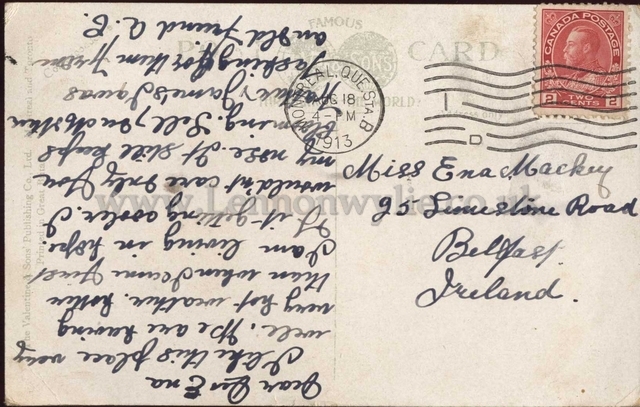 FAMOUS
CARD
THE WORLD
CANADA POSTAGE
2 TWO 2
CENTS
MONTREAL, QUE. STA. B
AUG 18
4-PM
1913
Miss Ena Mackey
25 Limestone Road
Belfast
Ireland.
Dear Ena
I like this place very
well. We are having
very hot weather. hotter
than when I came first
I am living in hopes
of it getting cooler. I
wouldnt care only
my nose. It still keeps
blooming. Tell Mother
James I was
asking for them From
an old friend A. E.
Valentine & Sons' Publishing Co., Ltd. and Toronto
Printed in Great
www.Lennonwylie.co.uk